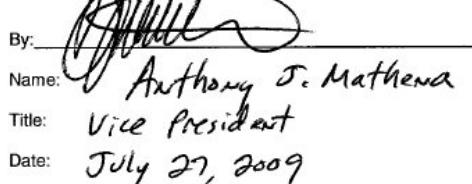 By:
Name: Anthony J. Mathena
Title: Vice President
Date: July 27, 2009